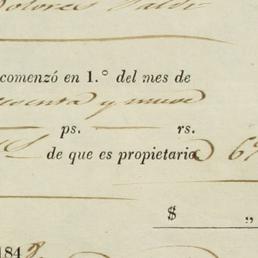 Dolores Valdi
comenzó en 1.° del mes de
y nueve
ps. rs.
de que es propietario 67
$ „
1848